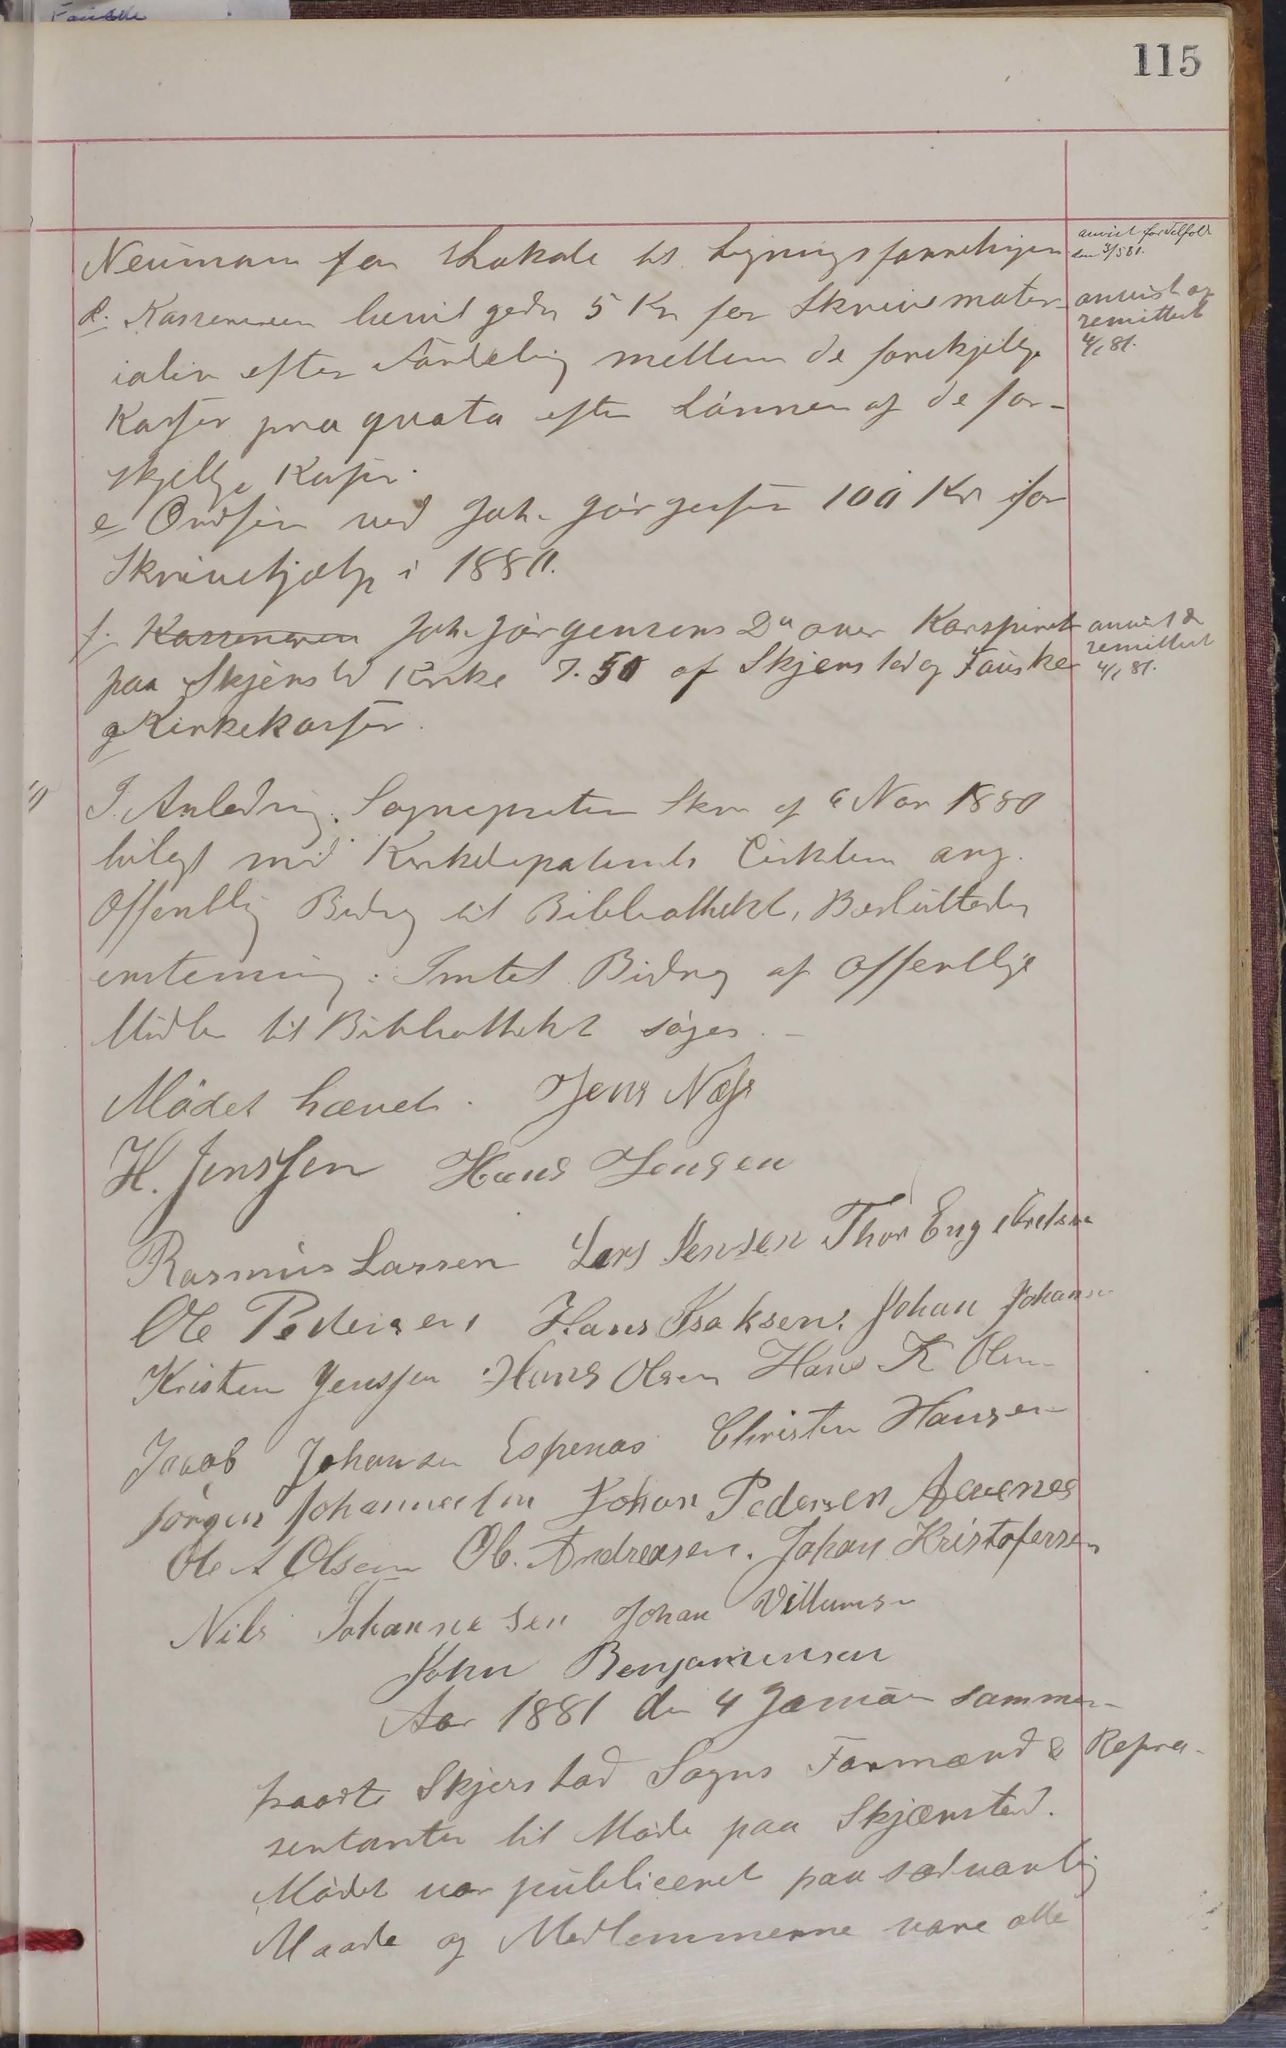 115
Neumann for Lokale til Ligningsforretningen
anvist
den 3/5 81.
d. Kassereren bevilgedes 5 Kr for Skrivemater-
anvist og
remitteret
4/1 81.
ialier efter Fordeling mellem de forskjellige
Kasser pro quota efter Lönnen af de for-
skjellige Kasser.
e Ordføren ved Joh. Jörgensen 100 Kr for
Skrivehjælp i 1880.
f. Kassereren Joh Jörgensens Do over Karspiret
anvist &
remitteret
4/1 81.
paa Skjerstd Kirke 7.50 af Skjerstad og Fauske
g Kirkekasser.
I Anledning Sognepresten Skr af 6 Nov 1880
bilagt med Kirkedepatements Cirkulære ang.
Offentlig Bidrag til Bibliothekt, Besluttedes
enstemmig: Intet Bidrag af Offentlige
Midler til Bibliothekt söges. -
Mödet hævet. Jens Næss
H. Jenssen Hans Jensen
Rasmus Larsen Lars Jensen Thor Engebretsen
Ole Pedersen Hans Isaksen. Johan Johansen
Kristen Jenssen Hans Olsen Hans K Olsen
Jacob Johansen Espenes Christen Hansen
Jörgen Johannessen Johan Pedersen
Ole A Olsen Ol. Andreasen. Johan Kristofersen
Nils Johannesen Johan Villumsen
John Benjaminsen
Aar 1881 den 4 Januar sammen-
traadte Skjerstad Sogns Formænd & Repræ-
sentanter til Möde paa Skjærstad.
Mödet var publiceret paa sædvanlig
Maade og Medlemmerne vare alle